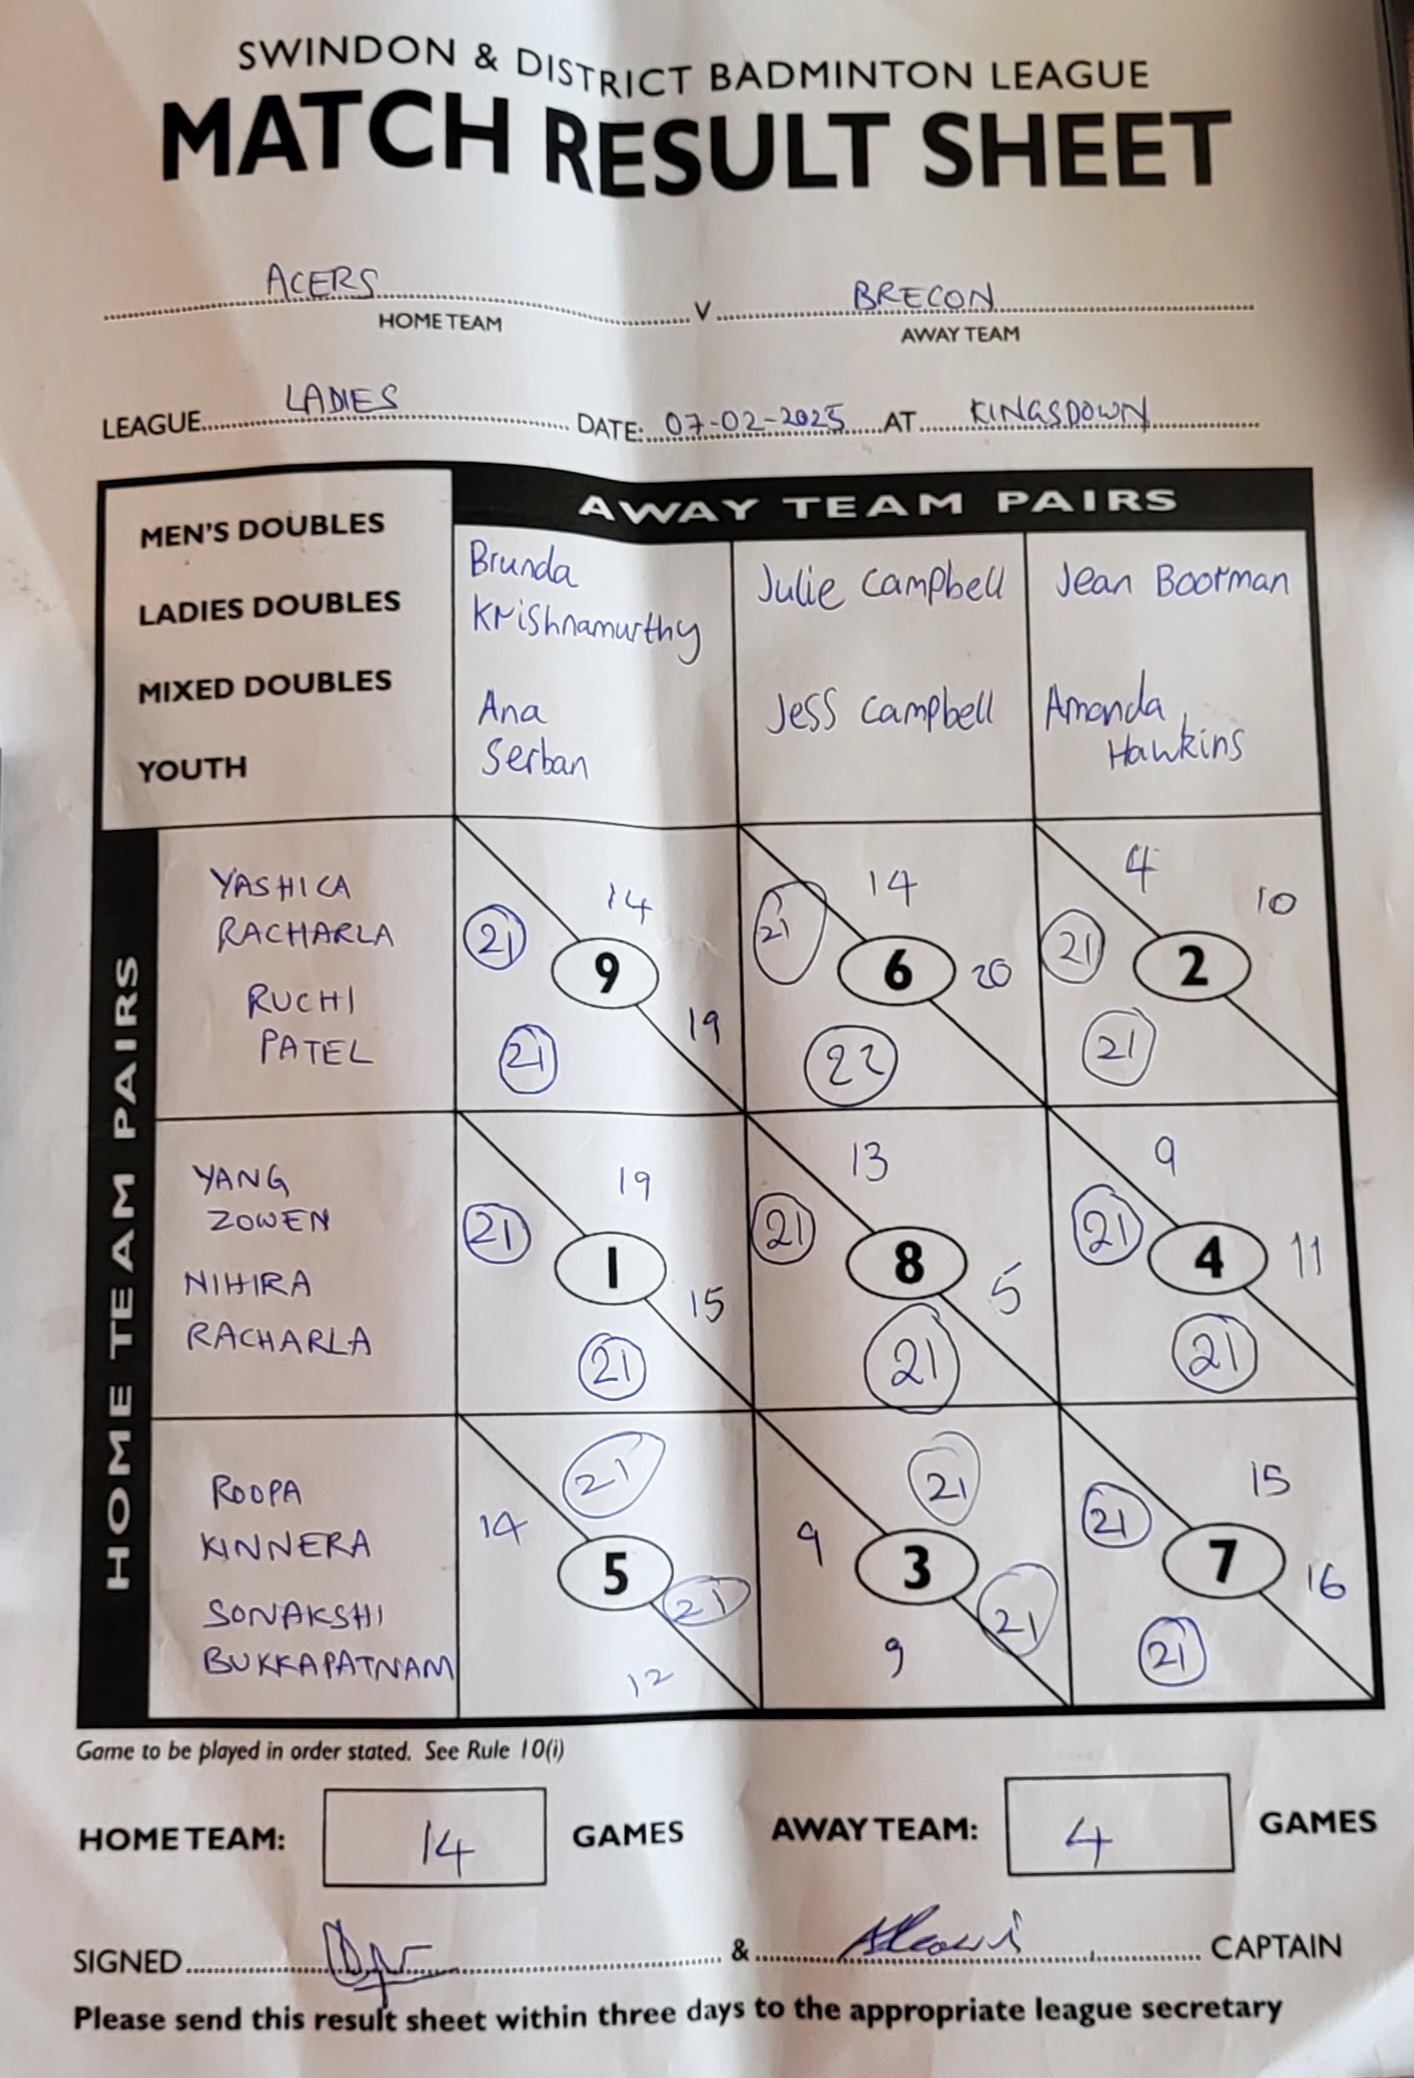 SWINDON & DISTRICT BADMINTON LEAGUE
MATCH RESULT SHEET
ACERS v BRECON
HOME TEAM AWAY TEAM
LEAGUE LADIES DATE: 07-02-2025 AT KINGSDOWN
MEN'S DOUBLES
LADIES DOUBLES
MIXED DOUBLES
YOUTH
AWAY TEAM PAIRS
Brunda
Krishnamurthy
Ana
Serban
Julie Campbell
Jess Campbell
Jean Boorman
Amanda
Hawkins
HOME TEAM PAIRS
YASHICA
RACHARLA
RUCHI
PATEL
14
21
9
19
21
14
21
6
20
22
4
10
21
2
21
YANG
ZOWEN
NIHIRA
RACHARLA
19
21
1
15
21
13
21
8
5
21
9
21
4
11
21
ROOPA
KINNERA
SONAKSHI
BUKKAPATNAM
21
14
5
21
12
21
9
3
21
9
15
21
7
16
21
Game to be played in order stated. See Rule 10(i)
HOME TEAM: 14 GAMES AWAY TEAM: 4 GAMES
SIGNED & CAPTAIN
Please send this result sheet within three days to the appropriate league secretary